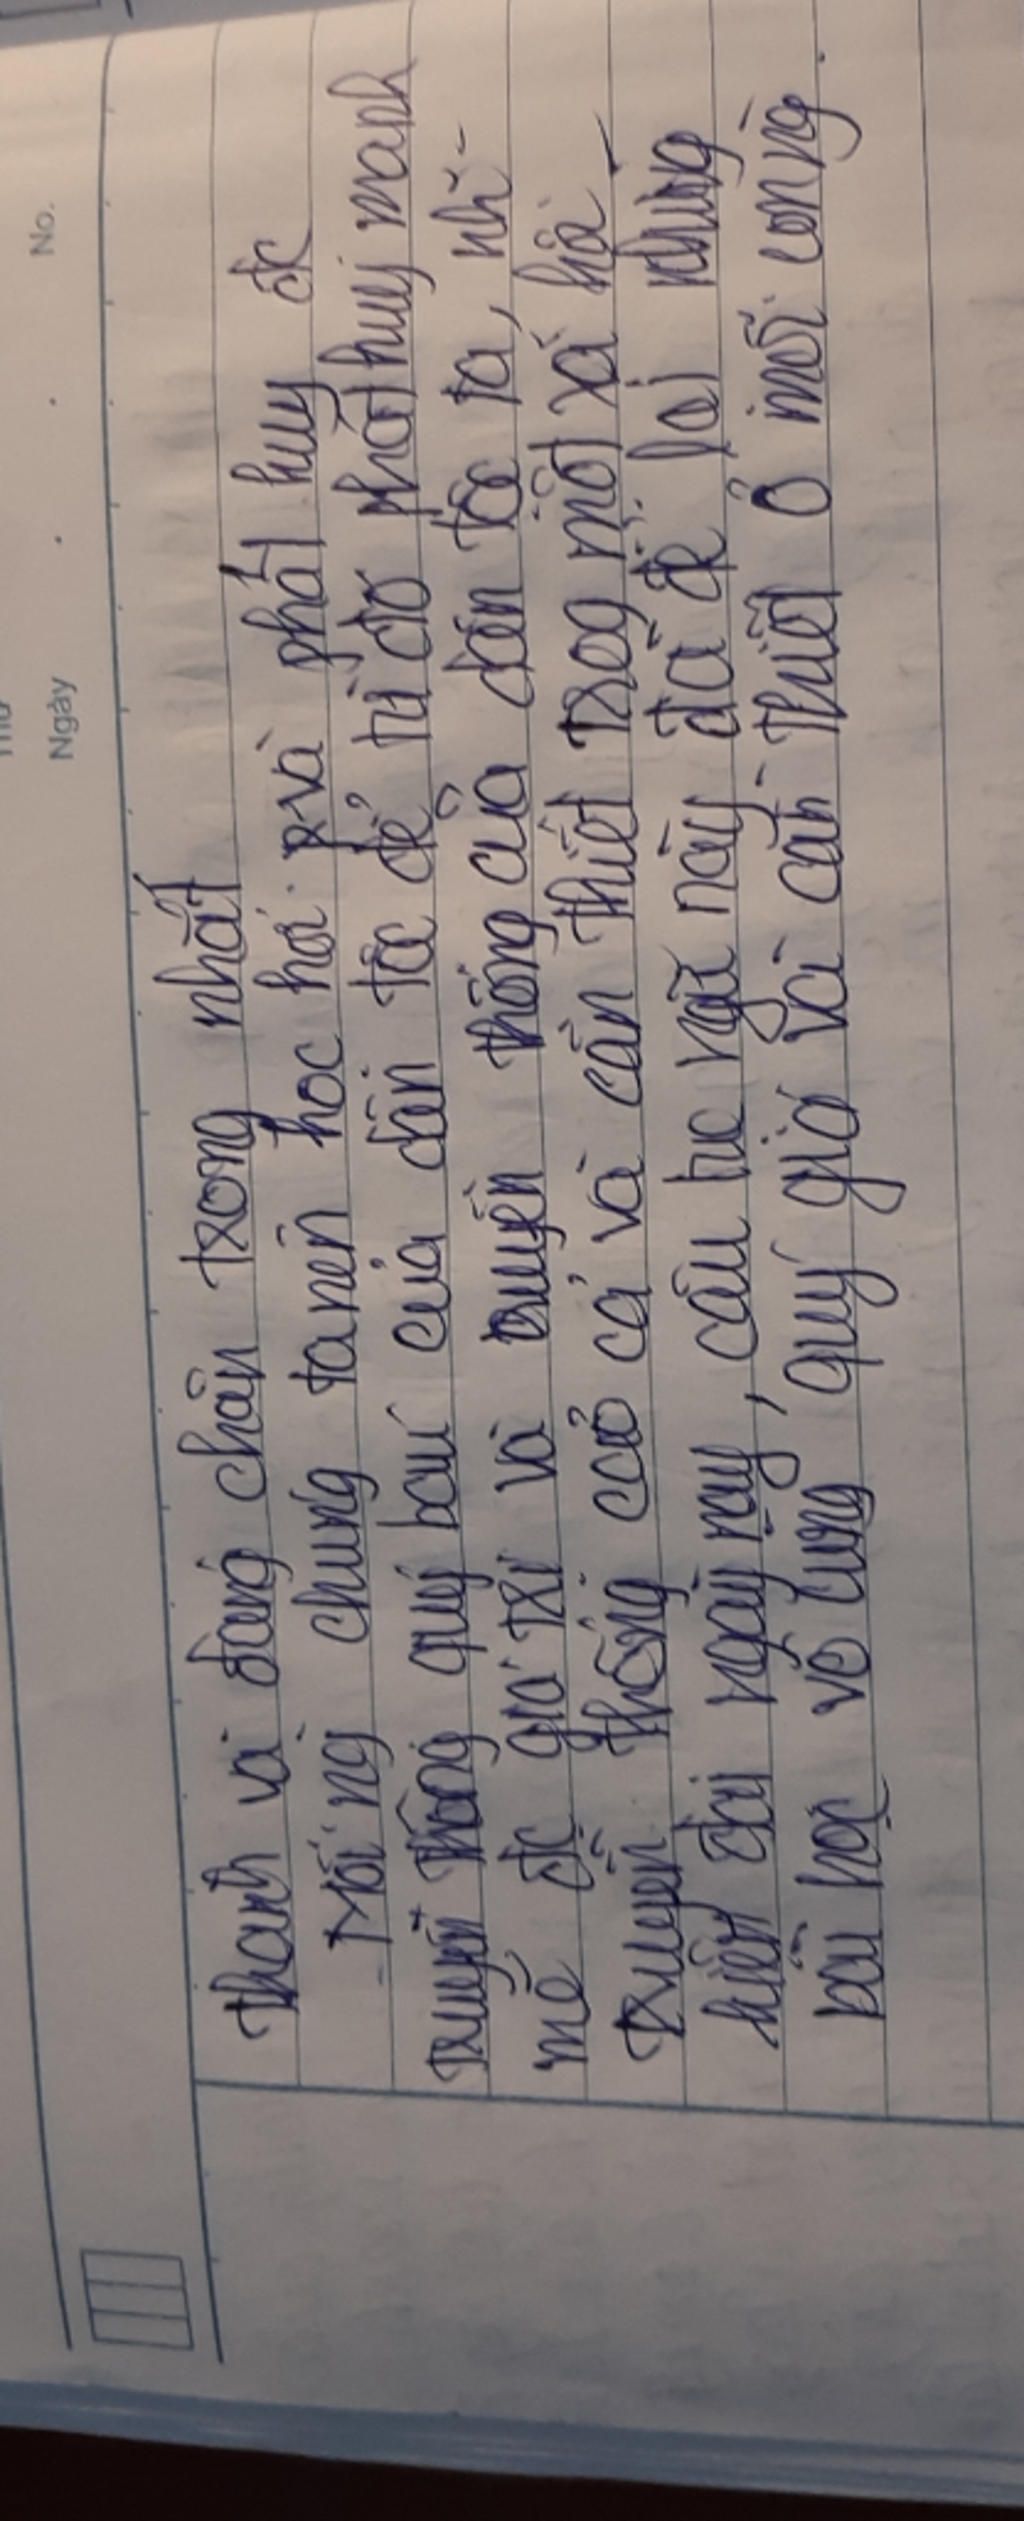 Ngày
No.
thanh và đáng chân trọng nhất
- Mỗi ng chúng ta nên học hỏi và phát huy đc
truyền thống quý báu của dân tộc để từ đó phát huy mạnh
mẽ đc giá trị và truyền thống của dân tộc ta, nh-
truyền thống cao cả và cần thiết trog một xã hội
hiện đại ngày nay, câu tục ngữ này đã để lại những
bài học vô cùng quý giá và cần thiết ở mỗi con ng.